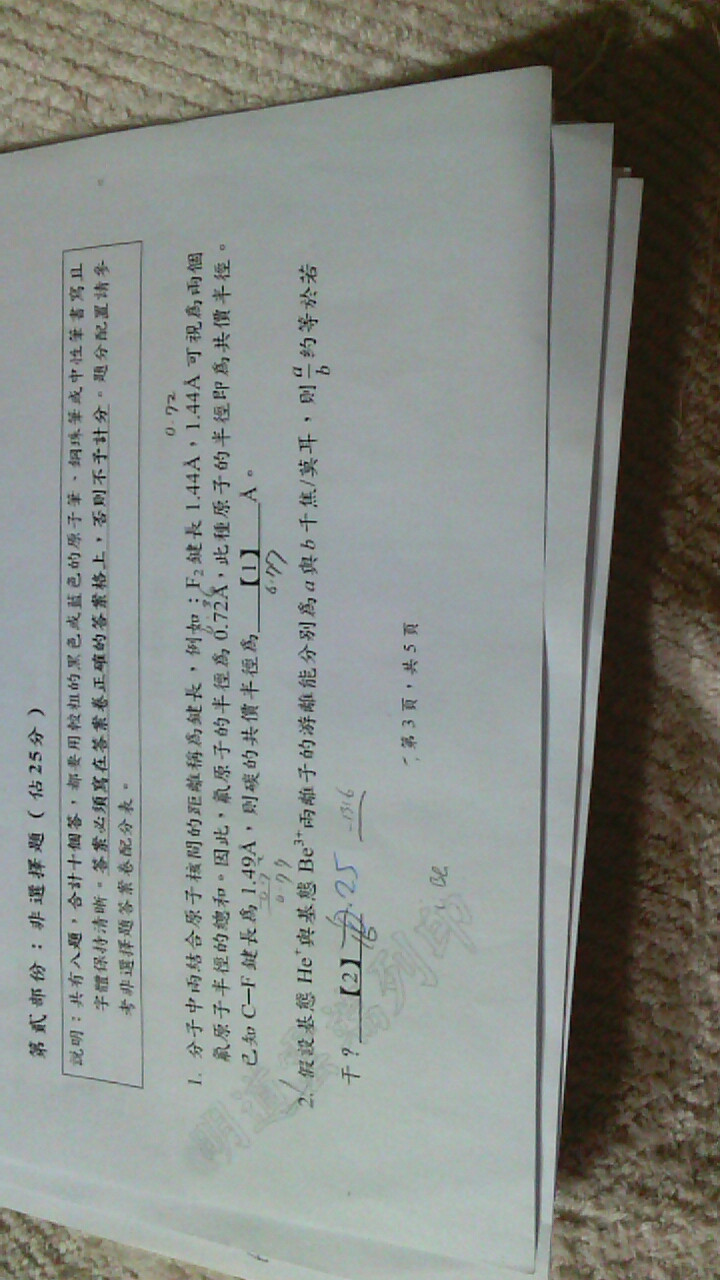 第貳部份：非選擇題（佔25分）
說明：共有八題，合計十個答，都要用較粗的黑色或藍色的原子筆、鋼珠筆或中性筆書寫且
字體保持清晰。答案必須寫在答案卷正確的答案格上，否則不予計分。題分配置請參
考非選擇題答案卷配分表。
0.72
1. 分子中兩結合原子核間的距離稱為鍵長，例如：F₂鍵長 1.44Å，1.44Å 可視為兩個
氟原子半徑的總和。因此，氟原子的半徑為 0.72Å，此種原子的半徑即為共價半徑。
已知 C−F 鍵長為 1.49Å，則碳的共價半徑為___【1】___Å。
0.77
2. 假設基態 He⁺與基態 Be³⁺兩離子的游離能分別為 a 與 b 千焦/莫耳，則 a/b 約等於若
干？___【2】___
.25
16
第 3 頁，共 5 頁